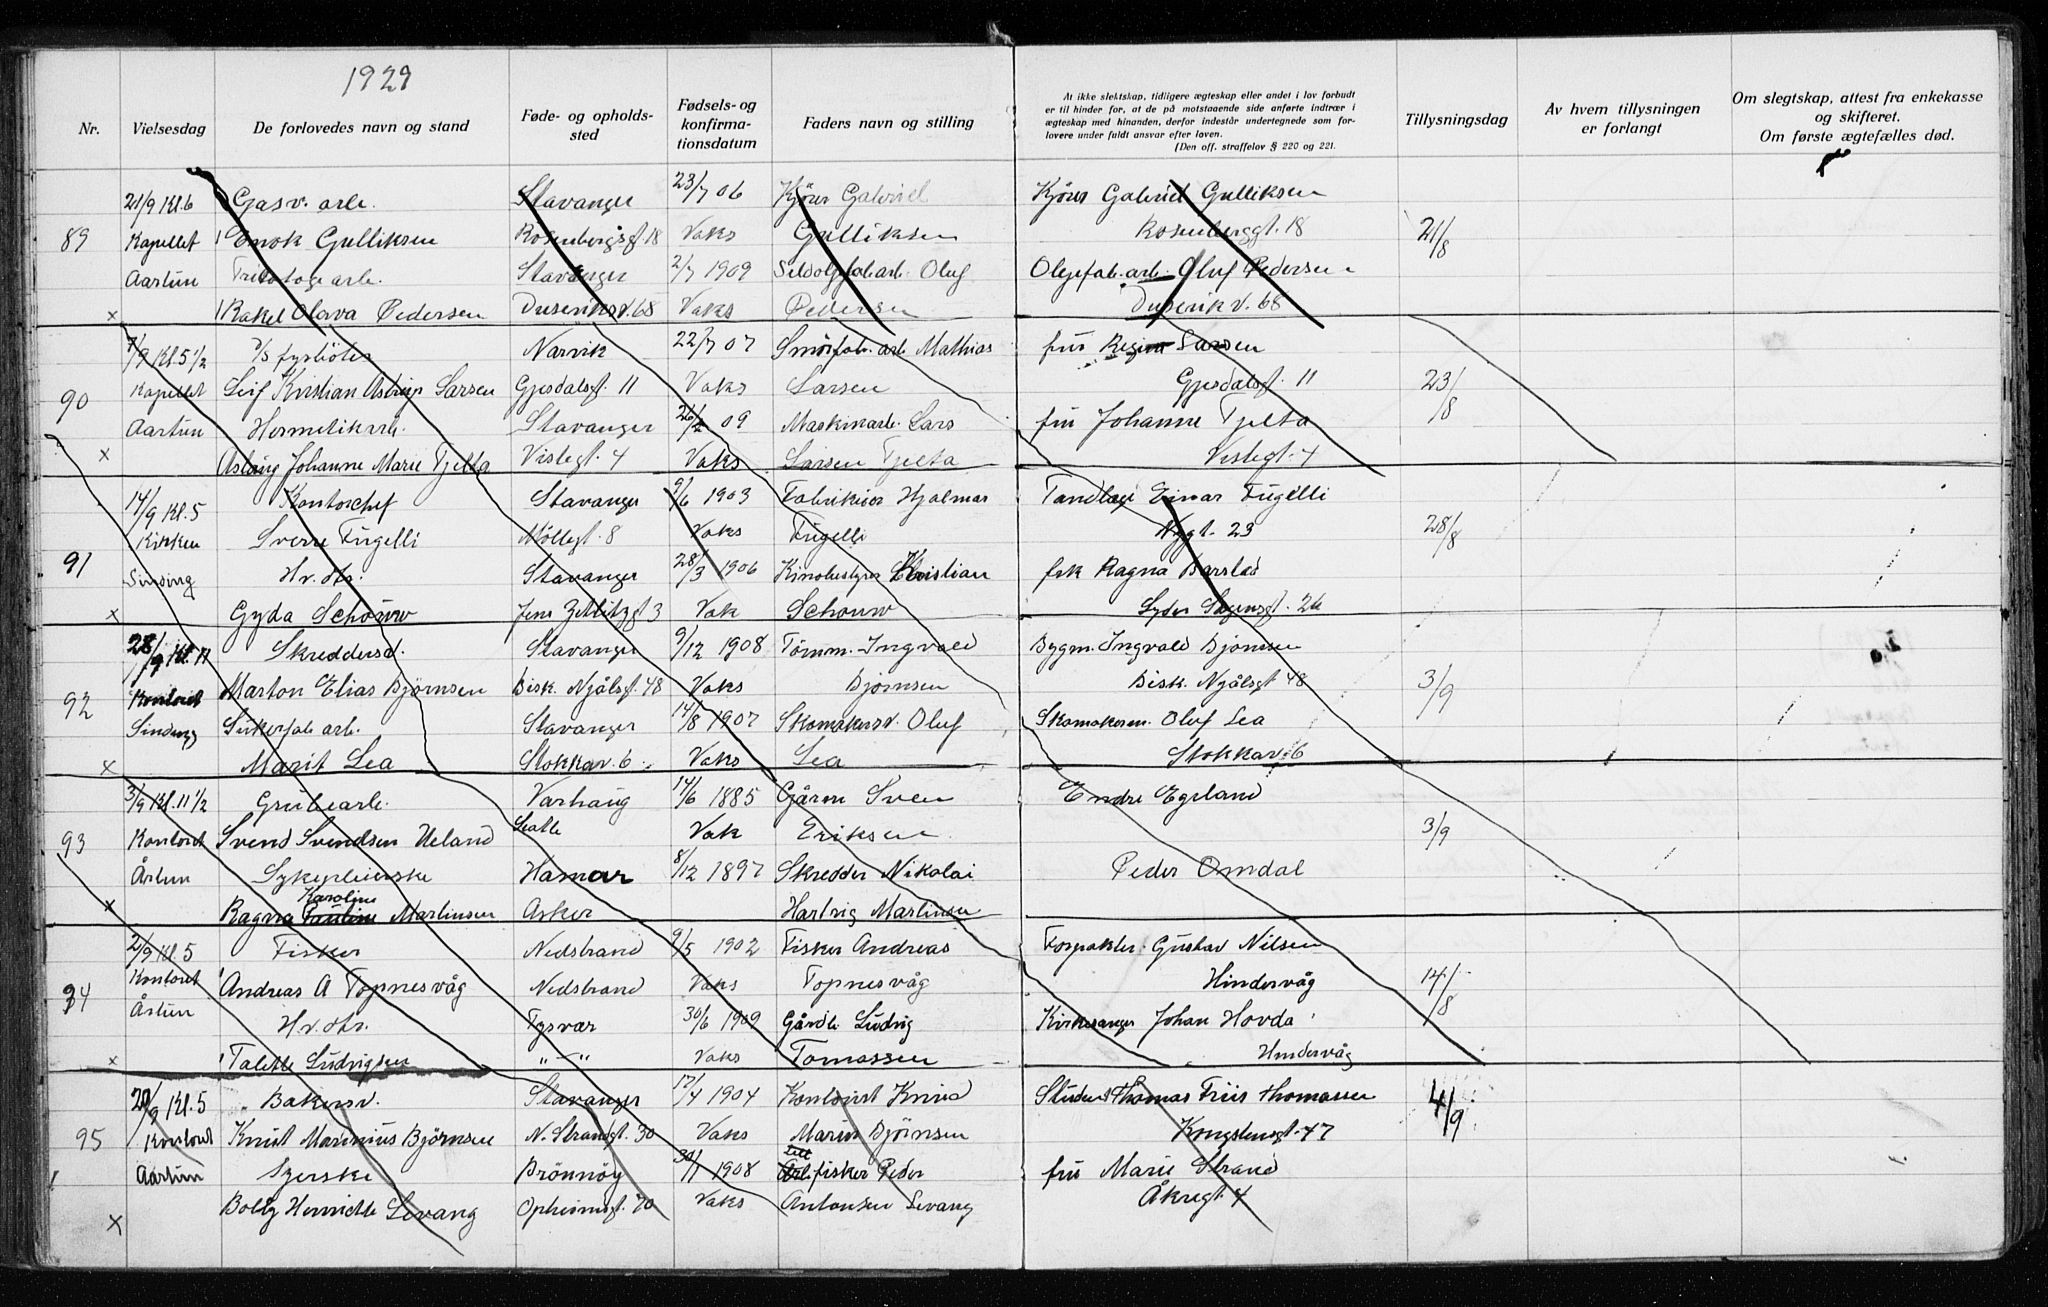 1929
Nr.
Vielsesdag
De forlovedes navn og stand
Føde- og opholds-
sted
Fødsels- og
konfirma-
tionsdatum
Faders navn og stilling
At ikke slektskap, tidligere ægteskap eller andet i lov forbudt
er til hinder for, at de på motstaaende side anførte indtrær i
ægteskap med hinanden, derfor indestår undertegnede som for-
lovere under fuldt ansvar efter loven.
(Den off. straffelov § 220 og 221.
Tillysningsdag
Av hvem tillysningen
er forlangt
Om slegtskap, attest fra enkekasse
og skifteret.
Om første ægtefælles død.
21/9 Kl. 6 Gasv. arb. Stavanger 23/7 06 Kjører Gabriel Kjører Gabriel Gulliksen
89 Kapellet Enok Gulliksen Rosenbergsgt. 18 Vaks Gulliksen Rosenberggt. 18 21/8
Aartun Stavanger 2/7 1909 Sildoljefab. arb. Oluf Oljefab. arb. Oluf Pedersen
x Rakel Olava Pedersen Duseviksv. 68 Vaks Pedersen Dusevik v. 68
7/9 Kl. 5 1/2 d/s fyrbøter Narvik 22/7 07 Smørfab. arb. Mathias fru Regina Larsen
90 Kapellet Leif Kristian Astrup Larsen Gjesdalsgt. 11 Vaks Larsen Gjesdalsgt. 11 23/8
Aartun Hermetikarb. Stavanger 26/2 09 Maskinarb. Lars fru Johanne Tjelta
x Aslaug Johanne Marie Tjelta Vistegt. 4 Vaks Larsen Tjelta Vistegt. 4
14/9 Kl. 5 Kontorchef Stavanger 9/6 1903 Fabrikeier Hjalmar Tandlæge Einar Fugelli
91 Kirken Sverre Fugelli Møllegt. 8 Vaks Fugelli Nygt. 23 28/8
Sinding Hv. dtr. Stavanger 28/3 1906 Kinobestyrer Kristian frk Ragna Barstad
x Gyda Schouw Jens Zetlitzgt 3 Vak Schouw Lyder Sagensgt. 26
28/9 Kl. 11 Skreddersv. Stavanger 9/12 1908 Tømm. Ingvald Bygm. Ingvald Bjørnsen
92 Kontoret Marton Elias Bjørnsen Bisk. Njålsgt. 48 Vaks Bjørnsen Bisk. Njålsgt 48 3/9
Sinding Sukerfab. arb. Stavanger 14/8 1907 Skomakersv. Oluf Skomakerm. Oluf Lea
x Marit Lea Stokkav. 6 Vaks Lea Stokkav. 6
3/9 Kl. 11 1/2 Grubearb. Varhaug 14/6 1885 Gårm Sven Endre Egeland
93 Kontoret Svend Svendsen Ueland Seatle Vak Eriksen 3/9
Årtun Sykepleierske Hamar 8/12 1897 Skredder Nikolai Peder Omdal
Karoline
x Ragna Pauline Martinsen Asker Hartvig Martinsen
21/9 Kl. 5 Fisker Nedstrand 9/5 1902 Fisker Andreas Forpakter Gustav Nilsen
94 Kontoret Andreas A Topnesvåg Nedstrand Vaks Topnesvåg Hindervåg 14/8
Årtun Hv. dtr. Tysvær 30/6 1909 Gårdb. Ludvig Kirkesanger Johan Hovda
x Talette Ludvigsen „ — „ Vaks Tomassen Hindervåg
20/9 Kl. 5 Bakersv. Stavanger 12/4 1904 Kontorist Knud Student Thomas Friis Thomassen
95 Kontoret Knut Marinius Bjørnsen N. Strandgt. 30 Vaks Marius Bjørnsen Kongstensgt. 47 4/9
Aartun Syerske Brønnøy 30/1 1908 fisker Peder fru Marie Strand
x Bolly Henriette Levang Opheimsgt. 70 Vaks Antonsen Levang Åkregt. 4